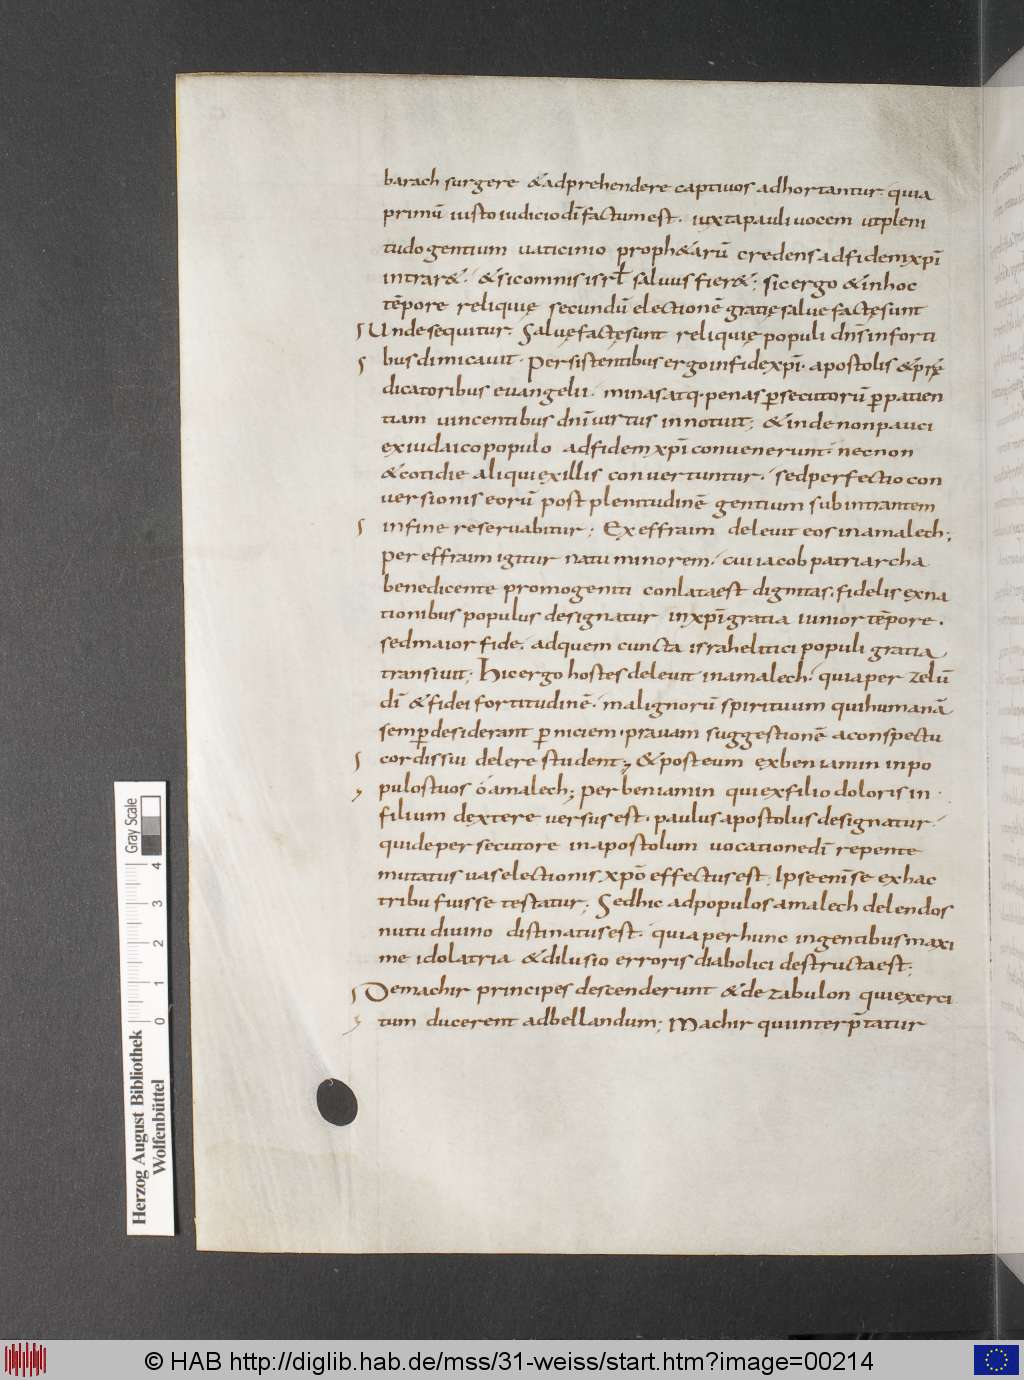 barach surgere & adprehendere captiuos adhortantur quia
primū iusto iudicio dī factum est. iuxta pauli uocem ut pleni
tudo gentium uaticinio proph&arū credens ad fidem xpī
intrar&. & sic omnis isrł saluus fier&; sic ergo & in hoc
tēpore reliquię secundū electionē gratię saluę factę sunt
Unde sequitur. Saluę factę sunt reliquię populi dn̄s in forti
bus dimicauit. Persistentibus ergo in fide xpī. apostolis & p̄rę
dicatoribus euangelii. minas atq. penas ꝑsecutorū ꝑ patien
tiam uincentibus dnī uirtus innotuit; & inde non pauci
ex iudaico populo ad fidem xpī conuenerunt. necnon
& cotidie aliqui ex illis conuertuntur. sed perfectio con
uersionis eorū post plenitudinē gentium subintrantem
in fine reseruabitur; Ex effraim deleuit eos in amalech;
per effraim igitur natu minorem. cui iacob patriarcha
benedicente promogeniti conlata est dignitas. fidelis ex na
tionibus populus designatur in xpī gratia iunior tēpore.
sed maior fide. ad quem cuncta israhelitici populi gratia
transiuit; Hic ergo hostes deleuit in amalech. quia per zelū
dī & fidei fortitudinē. malignorū spirituum qui humanā
semꝑ desiderant ꝑniciem. prauam suggestionē a conspectu
cordis sui delere student; & post eum ex beniamin in po
pulos tuos ó amalech; per beniamin qui ex filio doloris in
filium dextere uersus est. paulus apostolus designatur.
qui de persecutore in apostolum uocatione dī repente
mutatus uas electionis xpō effectus est; Ipse enī se ex hac
tribu fuisse testatur; Sed hic ad populos amalech delendos
nutu diuino distinatus est. quia per hunc in gentibus maxi
me idolatria & dilusio erroris diabolici destructa est;
De machir principes descenderunt & de zabulon qui exerci
tum ducerent ad bellandum; Machir qui interp̄tatur
Gray Scale
0 1 2 3 4
Herzog August Bibliothek
Wolfenbüttel
© HAB http://diglib.hab.de/mss/31-weiss/start.htm?image=00214